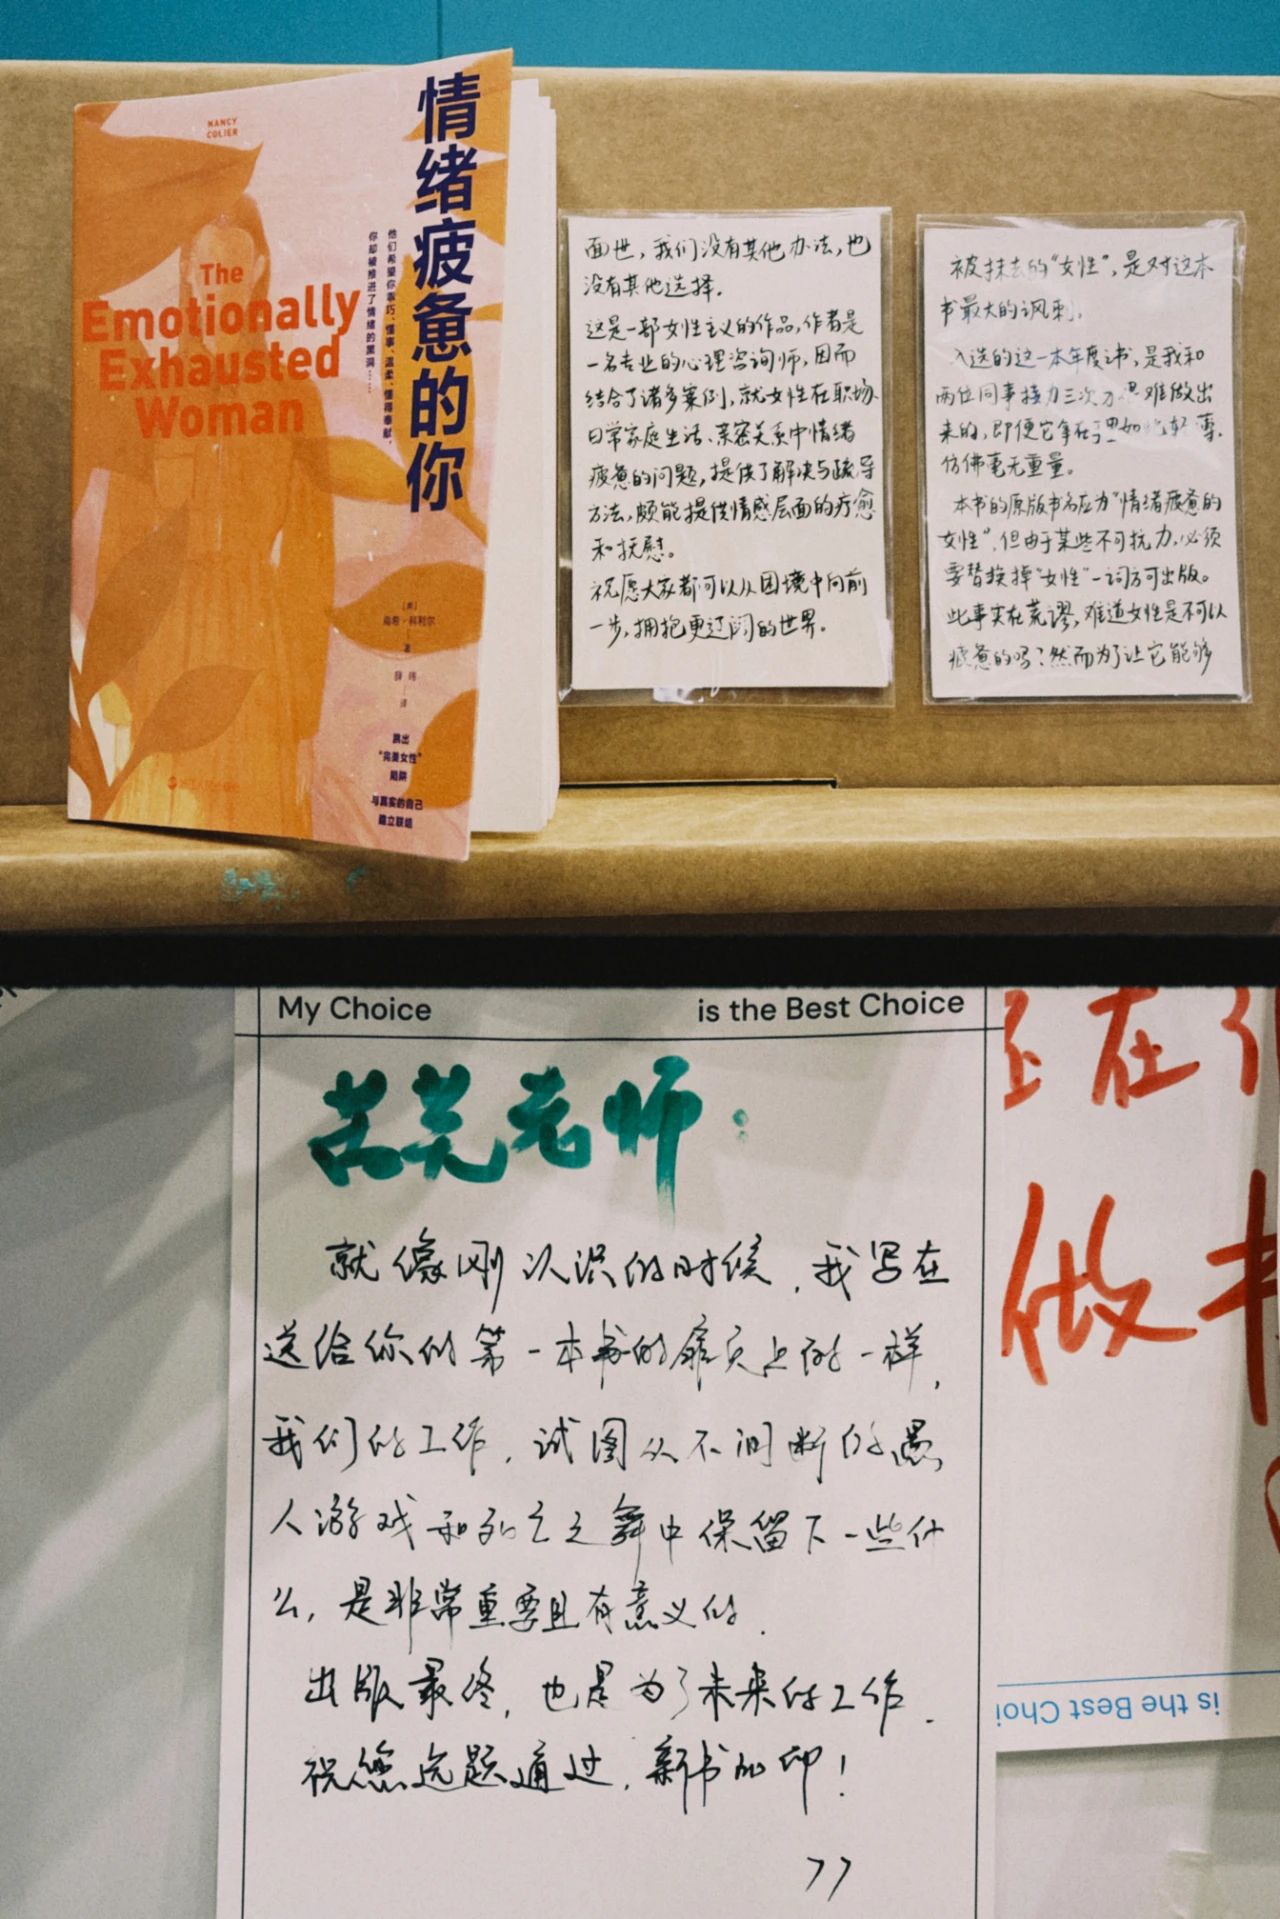 NANCY
COLIER
情绪疲惫的你
他们希望你乖巧、懂事、温柔、懂得奉献，
你却被推进了情绪的黑洞……
The
Emotionally
Exhausted
Woman
[美]
南希·科利尔
著
译
跳出
“完美女性”
陷阱
与真实的自己
建立联结
面世，我们没有其他办法，也
没有其他选择.
这是一部女性主义的作品，作者是
一名专业的心理咨询师，因而
结合了诸多案例，就女性在职场、
日常家庭生活、亲密关系中情绪
疲惫的问题，提供了解决与疏导
方法，颇能提供情感层面的疗愈
和抚慰。
祝愿大家都可以从困境中向前
一步，拥抱更辽阔的世界.
被抹去的“女性”，是对这本
书最大的讽刺.
入选的这一本年度之书，是我和
两位同事接力三次才艰难做出
来的，即便它拿在手里如此轻薄，
仿佛毫无重量。
本书的原版书名应为“情绪疲惫的
女性”，但由于某些不可抗力，必须
要替换掉“女性”一词方可出版。
此事实在荒谬，难道女性是不可以
疲惫的吗？然而为了让它能够
My Choice is the Best Choice
老师：
就像刚认识的时候，我写在
送给你的第一本书的扉页上的一样，
我们的工作，试图从不间断的愚
人游戏和死亡之舞中保留下一些什
么，是非常重要且有意义的.
出版最终，也是为了未来的工作.
祝您选题通过，新书加印！
77
在
做书
is the Best Choi